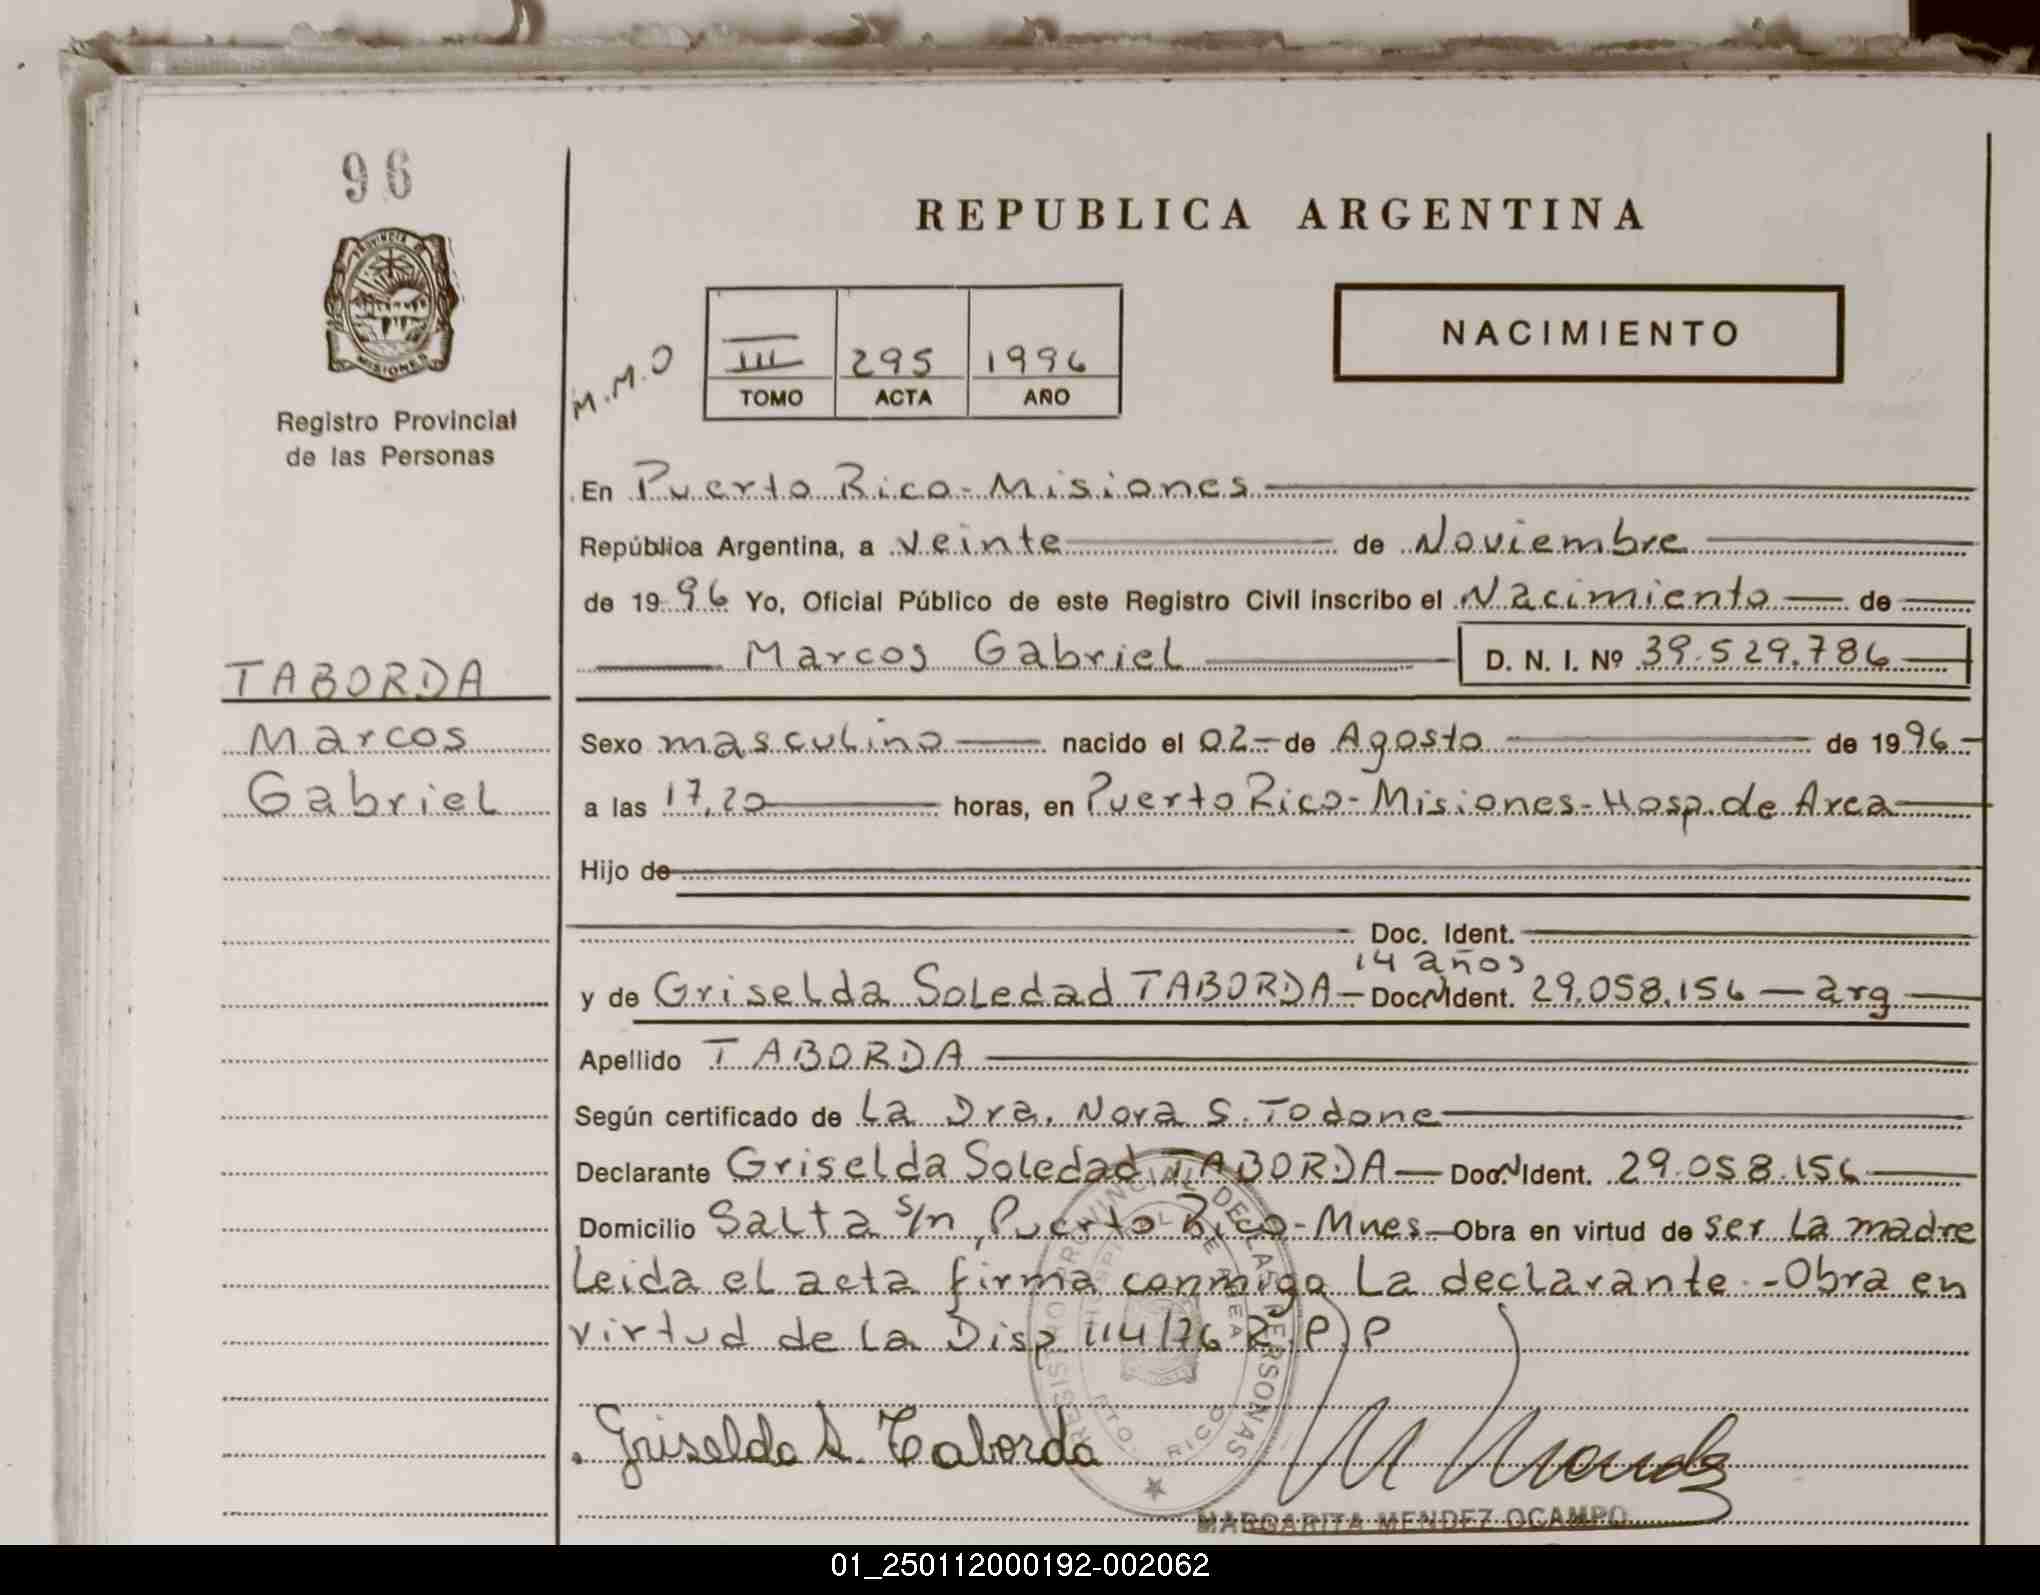 96
PROVINCIA DE
MISIONES
Registro Provincial
de las Personas
TABORDA
Marcos
Gabriel
REPUBLICA ARGENTINA
M.M.O
III 295 1996
TOMO ACTA AÑO
NACIMIENTO
En Puerto Rico - Misiones
República Argentina, a veinte de Noviembre
de 1996 Yo, Oficial Público de este Registro Civil inscribo el Nacimiento de
Marcos Gabriel D. N. I. Nº 39.529.786
Sexo masculino nacido el 02 de Agosto de 1996
a las 17,20 horas, en Puerto Rico - Misiones - Hosp. de Area
Hijo de
Doc. Ident.
14 años
y de Griselda Soledad TABORDA - Doc. Ident. 29.058.156 - arg
Apellido TABORDA
Según certificado de La Dra. Nora S. Todone
Declarante Griselda Soledad TABORDA - Doc. Ident. 29.058.156
Domicilio Salta s/n, Puerto Rico - Mnes. Obra en virtud de ser La madre
Leida el acta firma conmigo La declarante - Obra en
virtud de La Disp. 114/76 R.P.P
REGISTRO PROVINCIAL DE LAS PERSONAS
HOSPITAL DE AREA
PTO. RICO
Griselda S. Taborda
M Mendez
MARGARITA MENDEZ OCAMPO
01_250112000192-002062